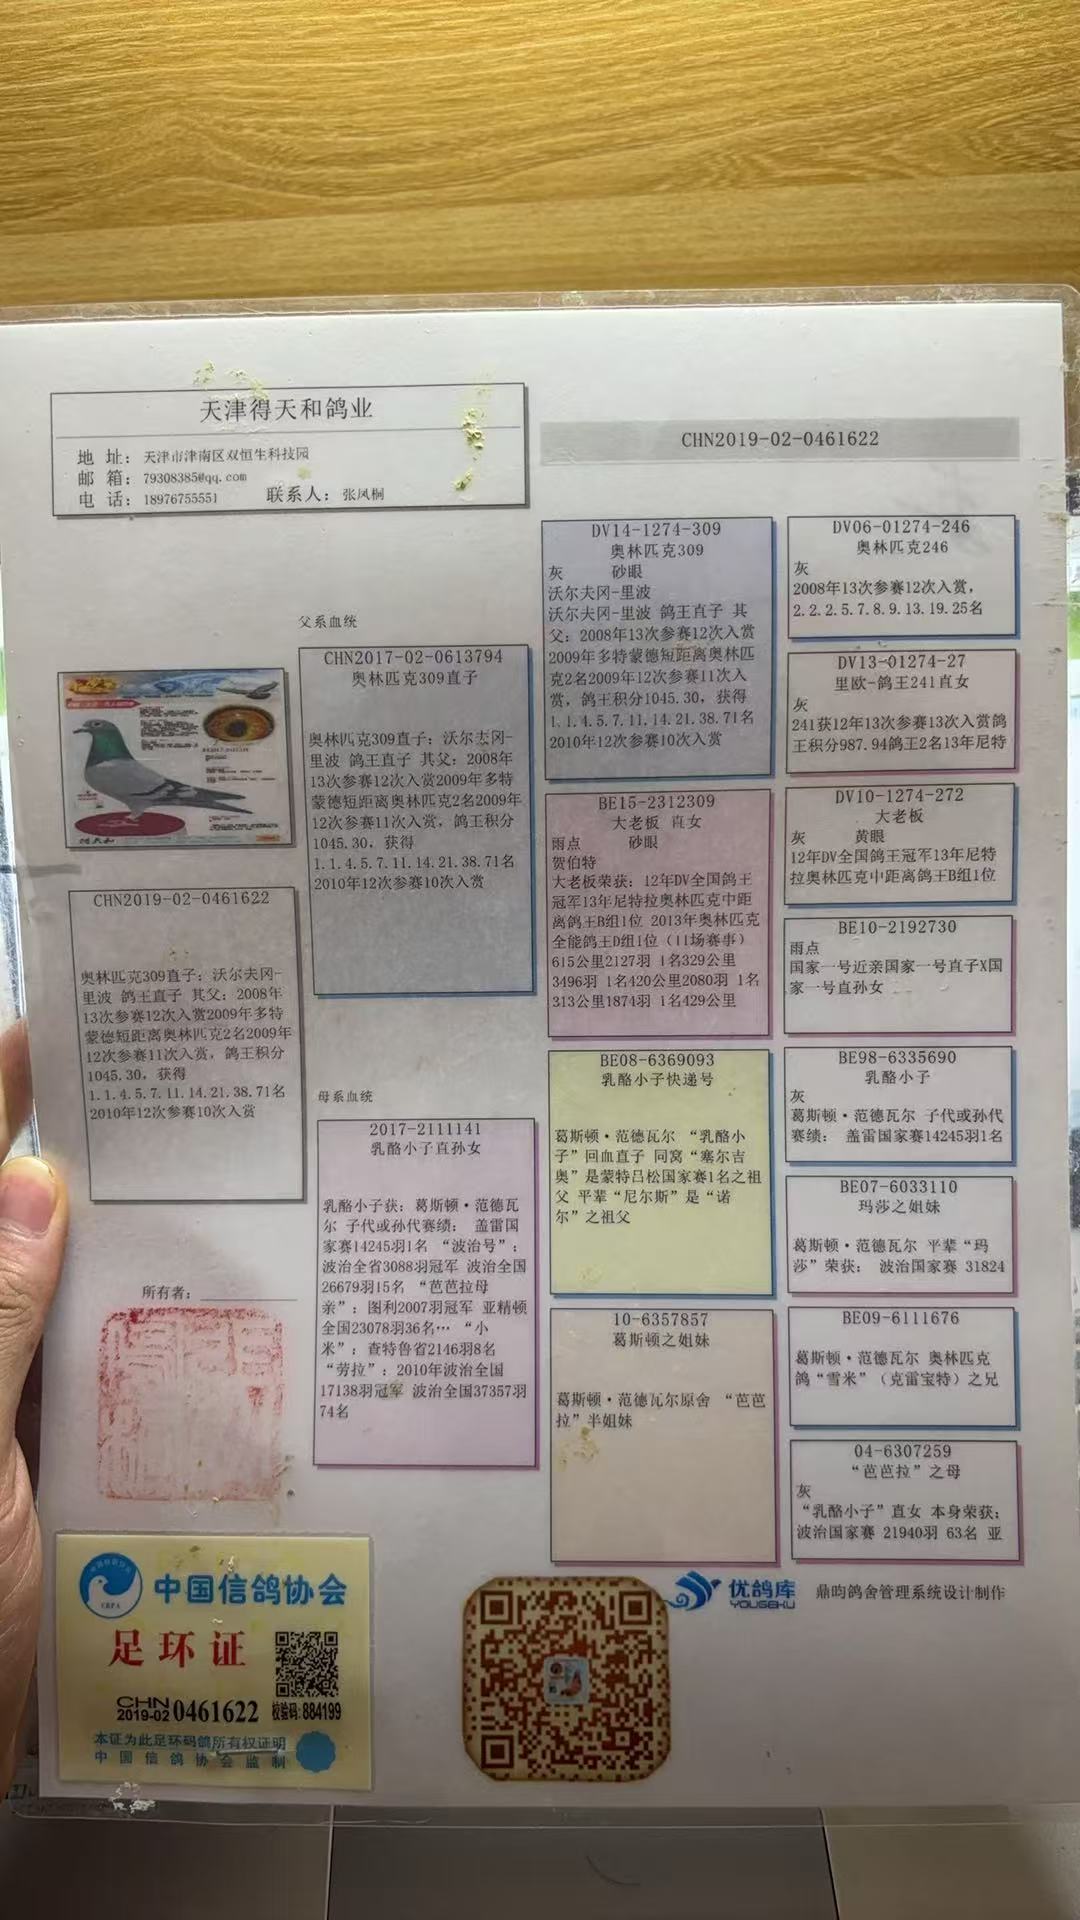 天津得天和鸽业
地 址: 天津市津南区双恒生科技园
邮 箱: 79308385@qq.com
电 话: 18976755551 联系人: 张凤桐
CHN2019-02-0461622
父系血统
CHN2019-02-0461622
奥林匹克309直子: 沃尔夫冈-
里波 鸽王直子 其父: 2008年
13次参赛12次入赏2009年多特
蒙德短距离奥林匹克2名2009年
12次参赛11次入赏, 鸽王积分
1045.30, 获得
1.1.4.5.7.11.14.21.38.71名
2010年12次参赛10次入赏
CHN2017-02-0613794
奥林匹克309直子
奥林匹克309直子: 沃尔夫冈-
里波 鸽王直子 其父: 2008年
13次参赛12次入赏2009年多特
蒙德短距离奥林匹克2名2009年
12次参赛11次入赏, 鸽王积分
1045.30, 获得
1.1.4.5.7.11.14.21.38.71名
2010年12次参赛10次入赏
母系血统
2017-2111141
乳酪小子直孙女
乳酪小子获: 葛斯顿·范德瓦
尔 子代或孙代赛绩: 盖雷国
家赛14245羽1名 “波治号”:
波治全省3088羽冠军 波治全国
26679羽15名 “芭芭拉母
亲”: 图利2007羽冠军 亚精顿
全国23078羽36名… “小
米”: 查特鲁省2146羽8名
“劳拉”: 2010年波治全国
17138羽冠军 波治全国37357羽
74名
DV14-1274-309
奥林匹克309
灰 砂眼
沃尔夫冈-里波
沃尔夫冈-里波 鸽王直子 其
父: 2008年13次参赛12次入赏
2009年多特蒙德短距离奥林匹
克2名2009年12次参赛11次入
赏, 鸽王积分1045.30, 获得
1.1.4.5.7.11.14.21.38.71名
2010年12次参赛10次入赏
BE15-2312309
大老板 直女
雨点 砂眼
贺伯特
大老板荣获: 12年DV全国鸽王
冠军13年尼特拉奥林匹克中距
离鸽王B组1位 2013年奥林匹克
全能鸽王D组1位 (11场赛事)
615公里2127羽 1名329公里
3496羽 1名420公里2080羽 1名
313公里1874羽 1名429公里
BE08-6369093
乳酪小子快递号
葛斯顿·范德瓦尔 “乳酪小
子”回血直子 同窝“塞尔吉
奥”是蒙特吕松国家赛1名之祖
父 平辈“尼尔斯”是“诺
尔”之祖父
10-6357857
葛斯顿之姐妹
葛斯顿·范德瓦尔原舍 “芭芭
拉”半姐妹
DV06-01274-246
奥林匹克246
灰
2008年13次参赛12次入赏,
2.2.2.5.7.8.9.13.19.25名
DV13-01274-27
里欧-鸽王241直女
灰
241获12年13次参赛13次入赏鸽
王积分987.94鸽王2名13年尼特
DV10-1274-272
大老板
灰 黄眼
12年DV全国鸽王冠军13年尼特
拉奥林匹克中距离鸽王B组1位
BE10-2192730
雨点
国家一号近亲国家一号直子X国
家一号直孙女
BE98-6335690
乳酪小子
灰
葛斯顿·范德瓦尔 子代或孙代
赛绩: 盖雷国家赛14245羽1名
BE07-6033110
玛莎之姐妹
葛斯顿·范德瓦尔 平辈“玛
莎”荣获: 波治国家赛 31824
BE09-6111676
葛斯顿·范德瓦尔 奥林匹克
鸽“雪米”(克雷宝特)之兄
04-6307259
“芭芭拉”之母
灰
“乳酪小子”直女 本身荣获:
波治国家赛 21940羽 63名 亚
所有者:
中国信鸽协会
CRPA
足环证
CHN
2019-02 0461622 校验码:884199
本证为此足环码鸽所有权证明
中国信鸽协会监制
优鸽库
YOUGEKU
鼎昀鸽舍管理系统设计制作